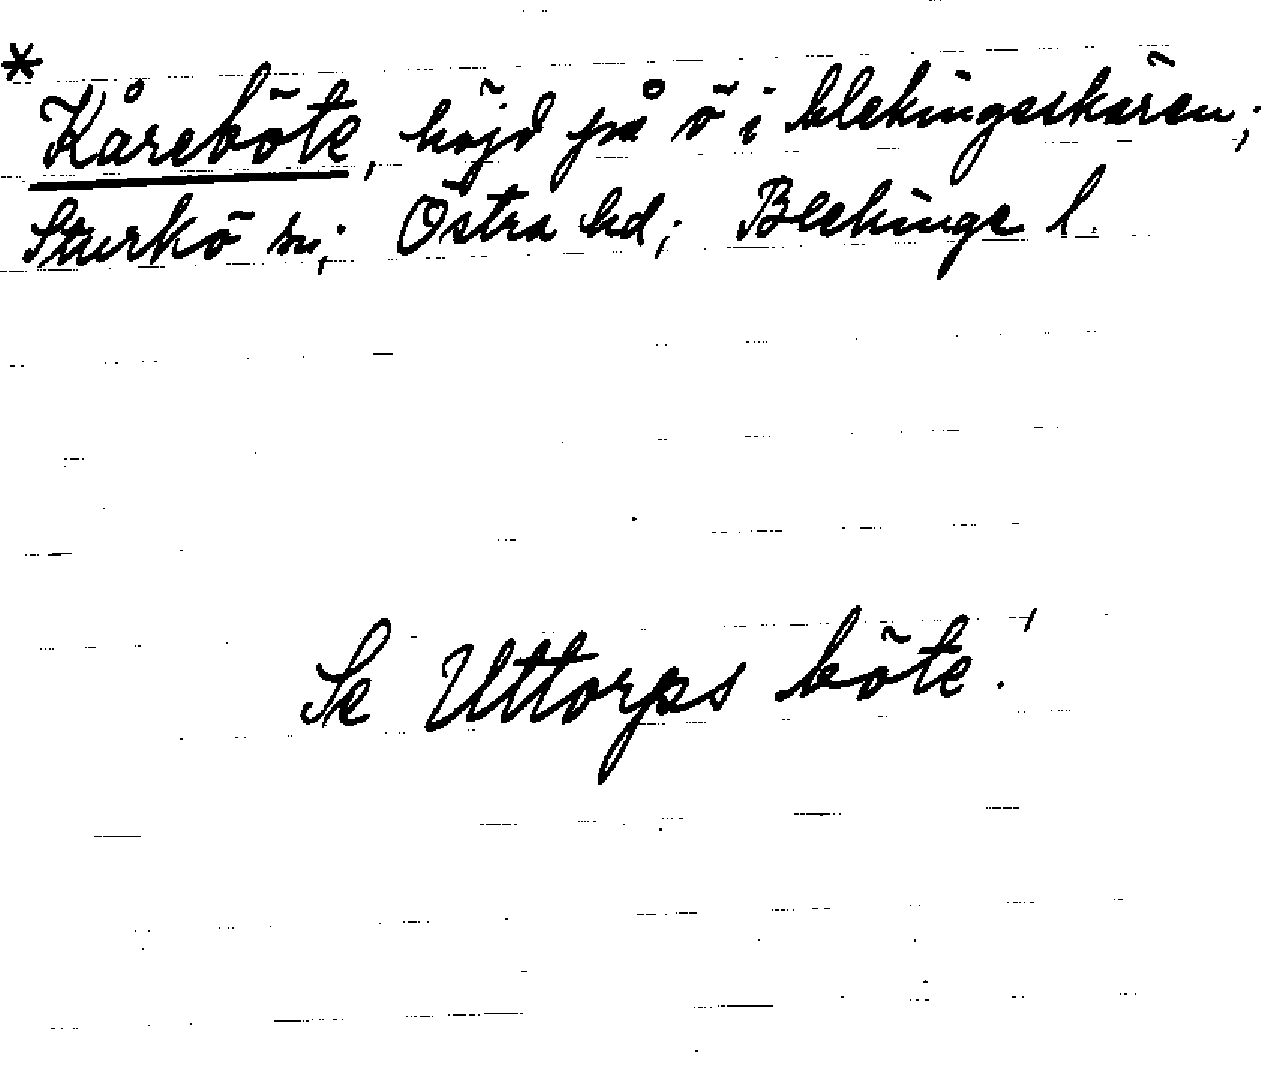 *
Kåreböte, höjd på ö i blekingsskären;
Sturkö sn; Östra hd; Blekinge l.
Se Uttorps böte!